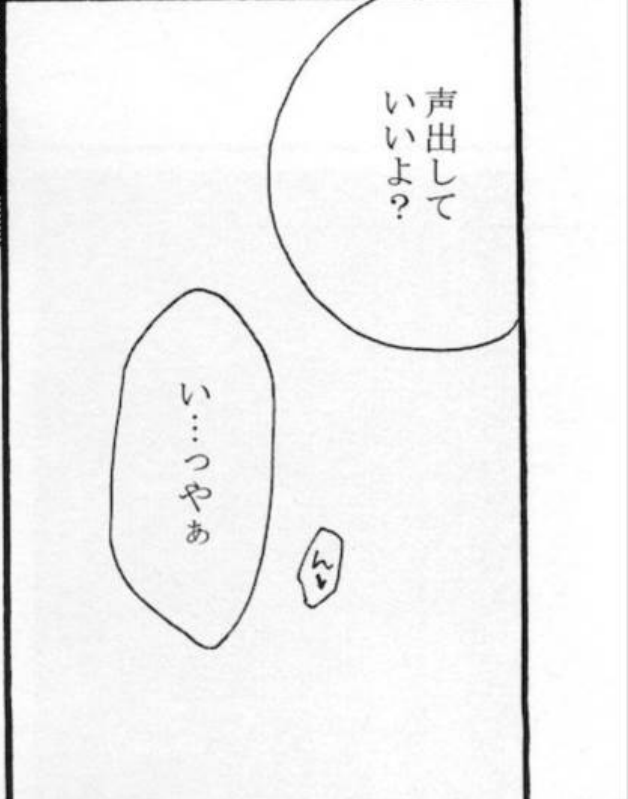 声出して
いいよ?
ん
い…っやぁ